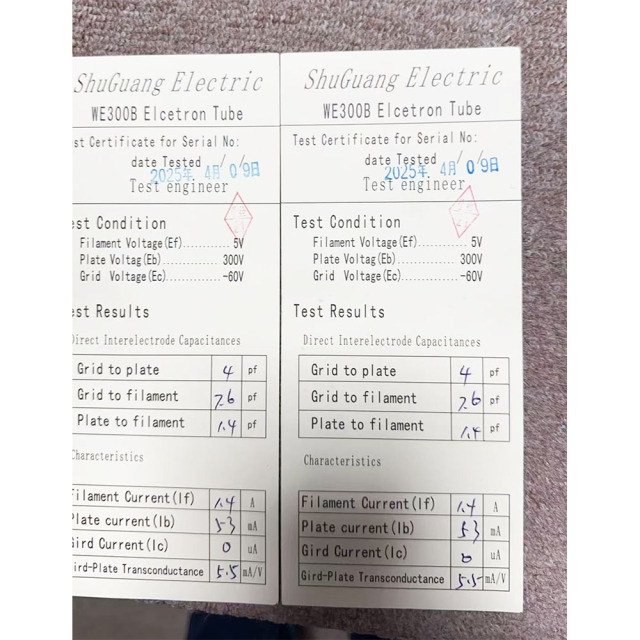 ShuGuang Electric
WE300B Elcetron Tube
est Certificate for Serial No:
date Tested / /
2025年 4月 09日
Test engineer
est Condition
Filament Voltage(Ef)........... 5V
Plate Voltag(Eb).............. 300V
Grid Voltag(Ec)............... -60V
est Results
Direct Interelectrode Capacitances
Grid to plate 4 pf
Grid to filament 7.6 pf
Plate to filament 1.4 pf
Characteristics
Filament Current(If) 1.4 A
Plate current(Ib) 53 mA
Gird Current(Ic) 0 uA
Gird-Plate Transconductance 5.5 mA/V
ShuGuang Electric
WE300B Elcetron Tube
Test Certificate for Serial No:
date Tested / /
2025年 4月 09日
Test engineer
Test Condition
Filament Voltage(Ef)........... 5V
Plate Voltag(Eb).............. 300V
Grid Voltag(Ec)............... -60V
Test Results
Direct Interelectrode Capacitances
Grid to plate 4 pf
Grid to filament 7.6 pf
Plate to filament 1.4 pf
Characteristics
Filament Current(If) 1.4 A
Plate current(Ib) 53 mA
Gird Current(Ic) 0 uA
Gird-Plate Transconductance 5.5 mA/V